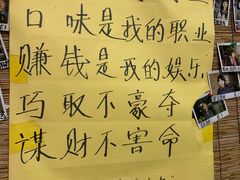 口味是我的职业
赚钱是我的娱乐
巧取不豪夺
谋财不害命